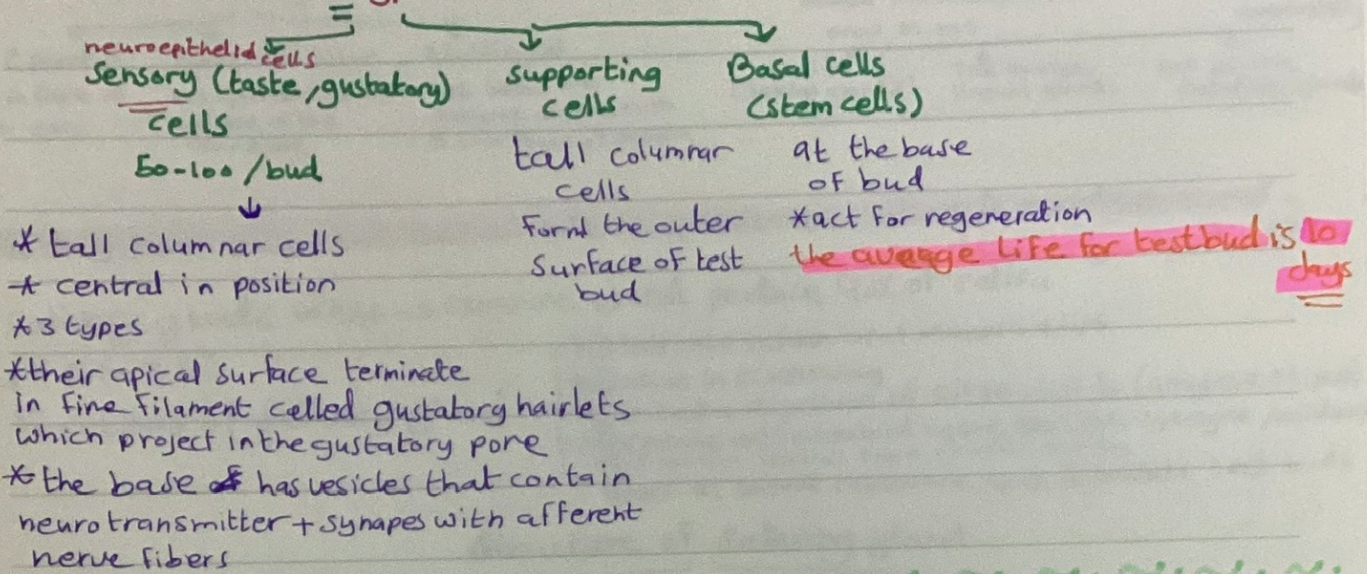 neuroepithelid cells
Sensory (taste, gustatory)
cells
50-100 /bud
* tall columnar cells
* central in position
* 3 types
* their apical surface terminate
in fine filament celled gustatory hairlets
which project in the gustatory pore
* the base has vesicles that contain
neurotransmitter + synapes with afferent
nerve fibers
supporting
cells
tall columnar
cells
Formd the outer
surface of test
bud
Basal cells
(stem cells)
at the base
of bud
* act for regeneration
the avearge life for testbud is 10
days